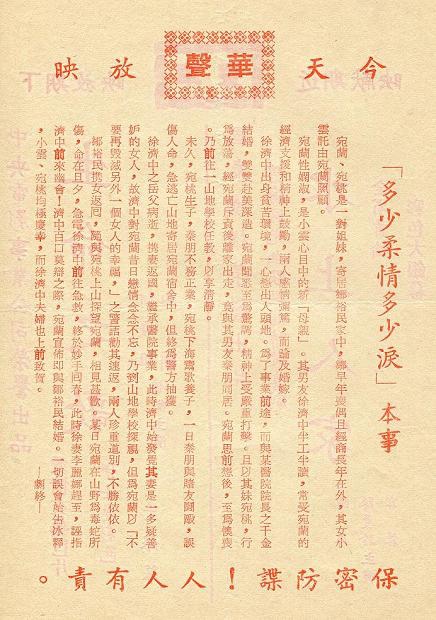 今天華聲放映
「多少柔情多少淚」本事
宛蘭、宛桃是一對姐妹,寄居鄒裕民家中,鄒早年喪偶且經商長年在外,其女小
雲託由宛蘭照顧。
宛蘭性嫻淑,是小雲心目中的新「母親」。其男友徐濟中半工半讀,常受宛蘭的
經濟支援和精神上鼓勵,兩人感情彌篤,而論及婚嫁。
徐濟中出身貧苦環境,一心想出人頭地。為了事業前途,而與某醫院院長之千金
結婚,雙雙赴美深造。宛蘭聞悉至為驚訝,精神上受嚴重打擊。且以其妹宛桃,行
為放蕩,經宛蘭斥責後離家出走,竟與其男友秦朋同居。宛蘭思前想後,至為懊喪
。乃前往一山地學校任教,以享清靜。
未久,宛桃生子,秦朋不務正業,宛桃下海鬻歌養子,一日秦朋與賭友鬪毆,誤
傷人命,急逃亡山地寄居宛蘭宿舍中,但終為警方抽獲。
徐濟中之岳父病逝,携妻返國,繼承醫院事業,此時濟中始發覺其妻是一多疑善
妒的女人,故濟中對宛蘭昔日戀情念念不忘,乃到山地學校探親,但為宛蘭以「不
要再毀滅另外一個女人的幸福,」之警語勸其速返,兩人珍重道別,不勝依依。
鄒裕民携女返囘,隨與宛桃上山探望宛蘭,相見甚歡。某日宛蘭在山野為毒蛇所
傷,命在旦夕,急電徐濟中前往急救,終於妙手囘春,此時徐妻李麗娜趕至,誣指
濟中前來幽會!濟中百口莫辯之際,宛蘭宣佈即與鄒裕民結婚。一切誤會始告冰釋
,小雲、宛桃均極慶幸,而徐濟中夫婦也上前致賀。
—劇終—
保密防諜!人人有責。